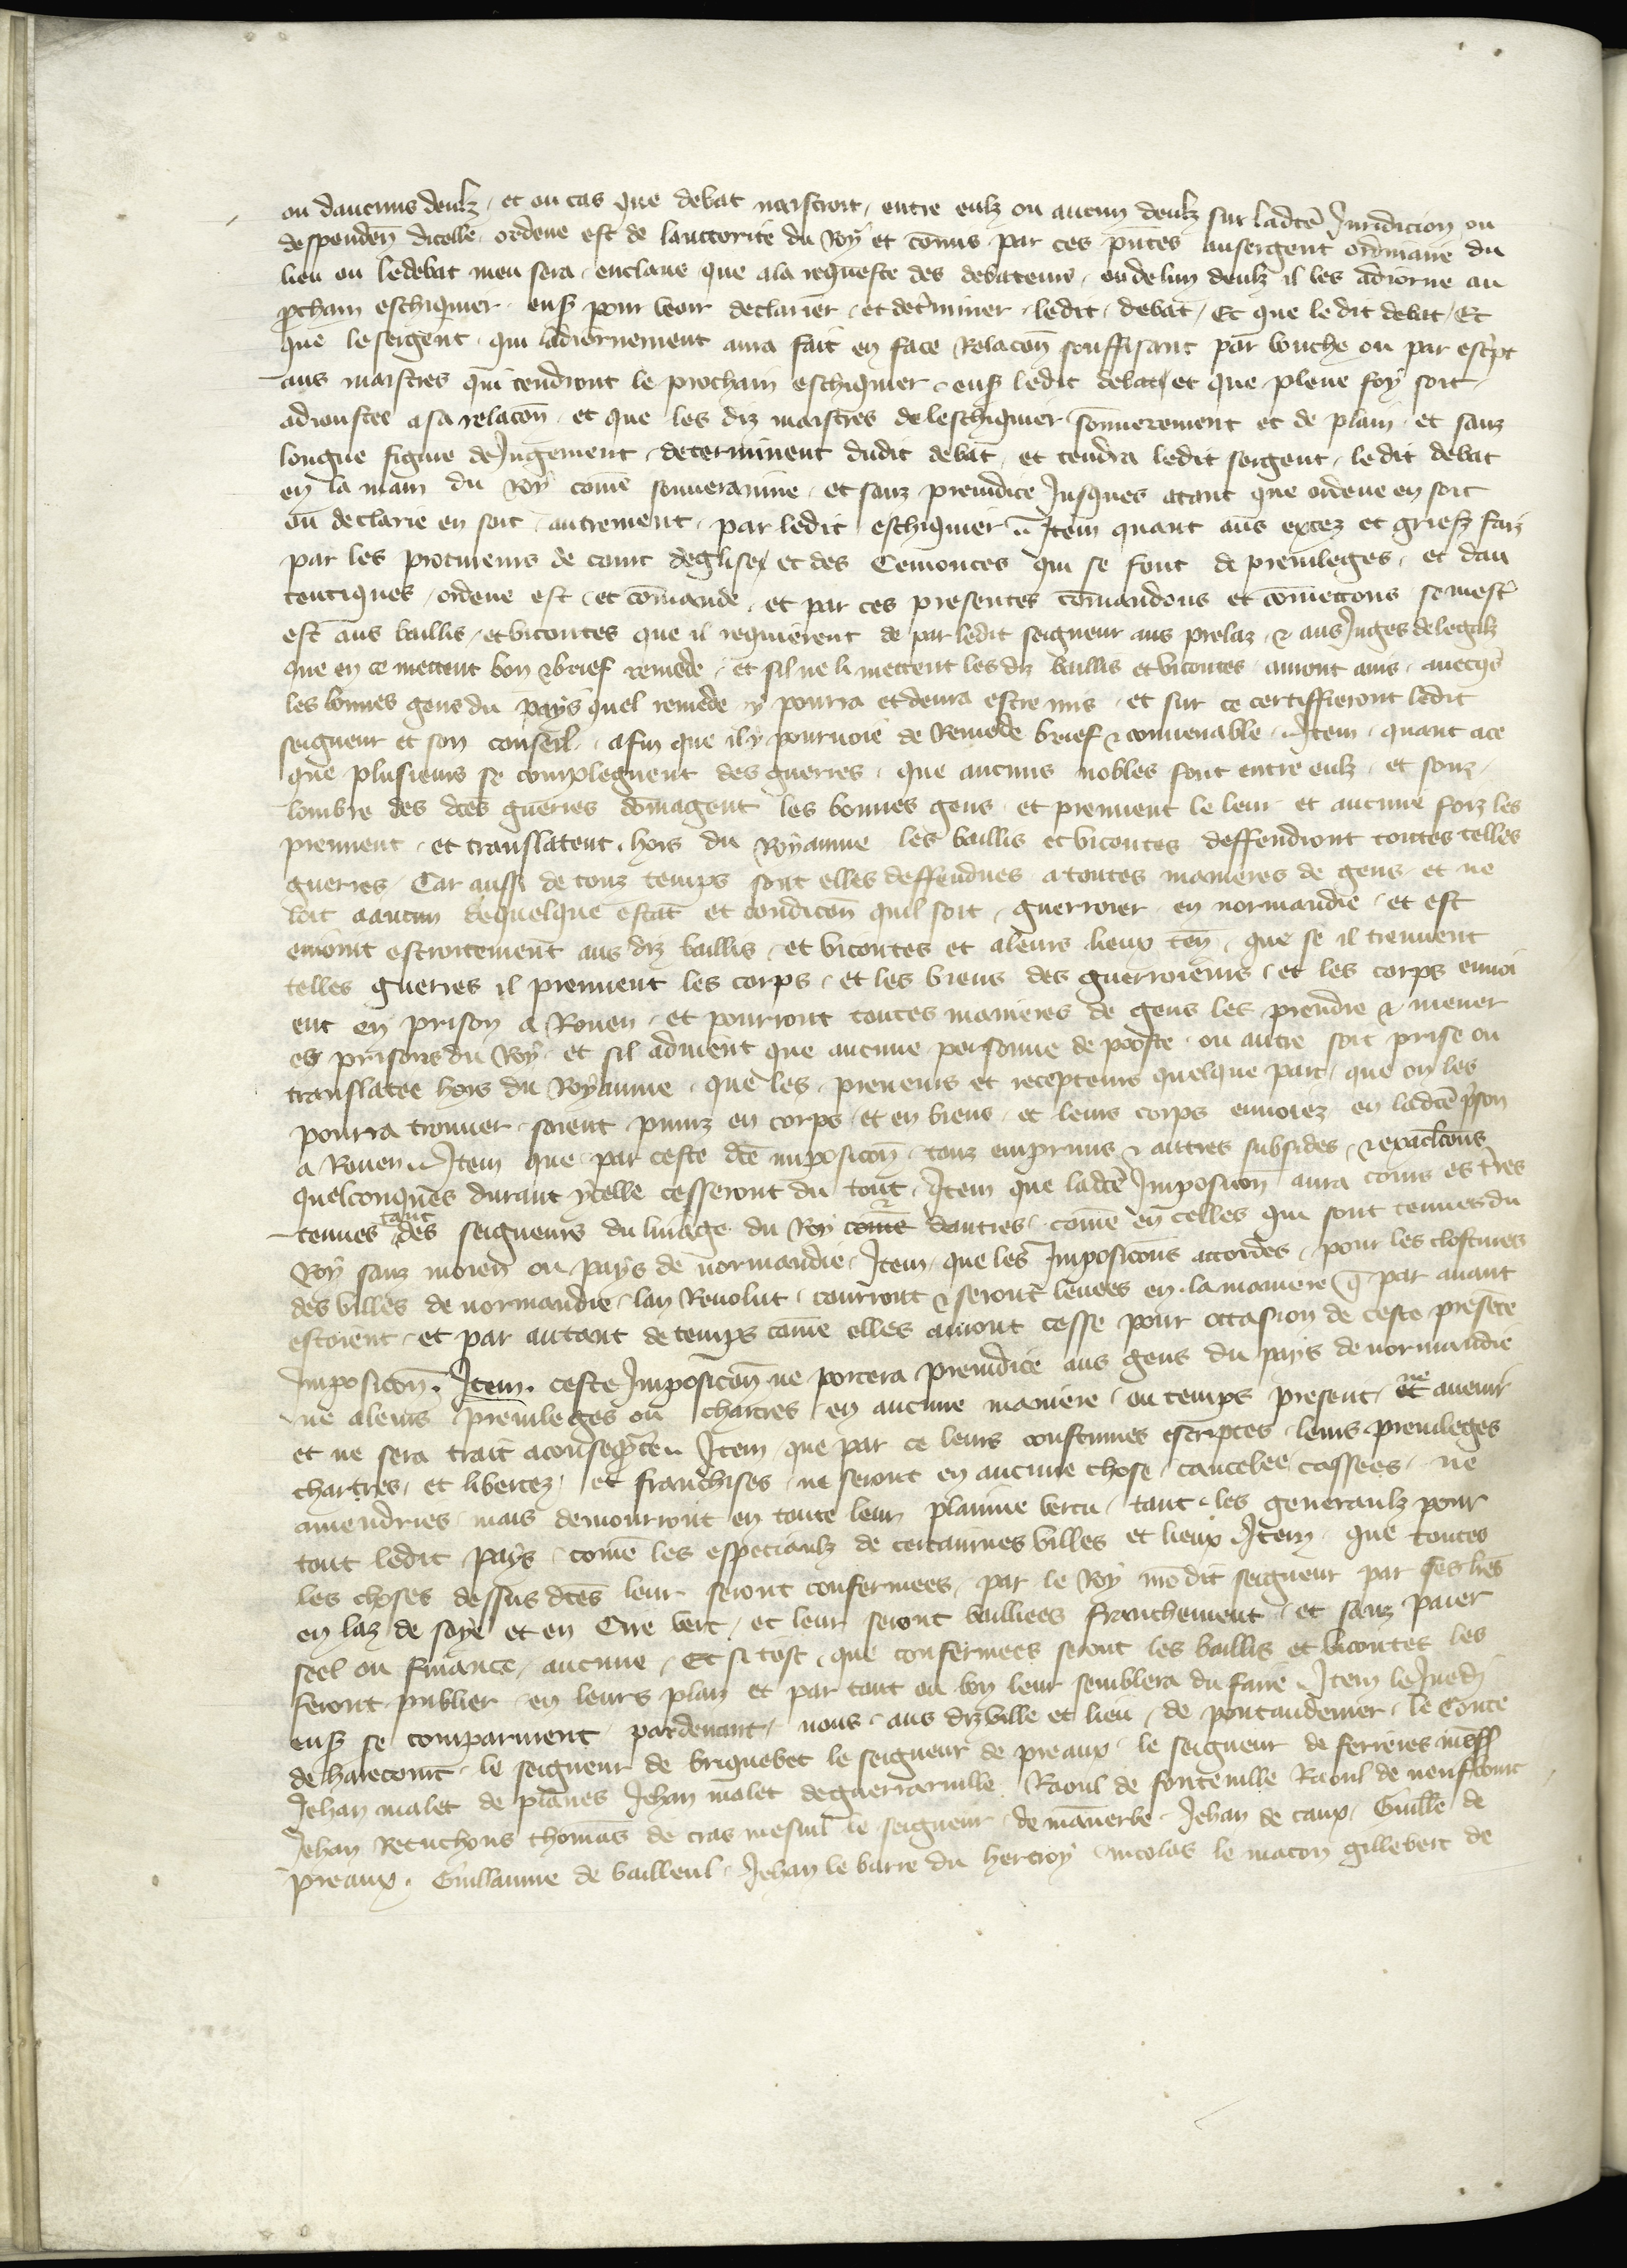 ou daucuns deulz et ou cas que debat naistroit entre eulz ou aucun deulz sur ladcē Juridicion ou
despendēn dicelle ordene est de lauctorite du Roy et cōmis par ces pn̄tes au sergent ordinaire du
lieu ou ledebat meu sera enclaue que ala requeste des debateurs ou de lun deulz il les adiorne au
ꝓchain eschiquier ens̄ pour veoir declairier et det̄miner ledit debat Et que le dit debat Et
que le sergent qui ladiornement aura fait en face Relacōn souffisant par bouche ou par esc̄pt
aus maistres qui tendront le prochain eschiquier ens̄ ledit debat et que plene foy soit
adioustee a sa relacōn et que les diz maistres de leschiquier sōmerement et de plain et sanz
longue figure de Jugement determinent dudit debat et tendra ledit sergent le dit debat
en la main du Roy cōme souuerainne et sanz preiudice Jusques atant que ordene en soit
ou declarie en soit autrement par ledit eschiquier Item quant aus excez et griefz faiz
par les procureurs de court deglise et des Cemonces qui se font de preuileges et dau
tentiques ordene est et cōmande et par ces presentes cōmandons et cōmettons se mest̄
est aus baillis et vicontes que il requierent de par ledit seigneur aus prelaz & aus Juges delegalz
que en ce mettent bon & brief remede et sil ne li mettent les diz baillis et vicontes auront auis auecq̄s
les bonnes gens du pays quel remede y pourra et deura estre mis et sur ce certiffieront ledit
seigneur et son conseil afin que il y pouruoie de Remede brief & conuenable Item quant ace
que plusieurs se complegnent des guerres que aucuns nobles font entre eulz et souz
lombre des dc̄es guerres dōmagent les bonnes gens et prennent le leur et aucune foiz les
prennent et translatent hors du Royaume les baillis et vicontes deffendront toutes telles
guerres Car aussi de touz temps sont elles deffendues a toutes manieres de gens et ne
loit a aucun de quelque estat et condicōn quil soit guerroier en normandie et est
enioint estroitement aus diz baillis et vicontes et aleurs lieux ten̄ que se il treuuent
telles guerres il prennent les corps et les biens des guerroieurs et les corps enuoi
ent en prison a Rouen et pourront toutes manieres de gens les prendre & mener
es prisons du Roy et sil aduient que aucune personne de pooste ou autre soit prise ou
translatee hors du Royaume que les preneurs et recepteurs quelque part que on les
pourra trouuer soient puniz en corps et en biens et leurs corps enuoiez en ladcē p̄son
a Rouen Item que par ceste dcē imposicōn touz empruns & autres subsides & exactions
quelconques durant ycelle cesseront du tout Item que ladcē Imposicion aura cours es t̄res
tenues tant des seigneurs du linage du Roy cōme dautres cōme en celles qui sont tenues du
Roy sanz moien ou pays de normandie Item que les Imposicōns accordes pour les clostures
des villes de normandie lan Reuolut courront & seront leuees en la maniere q̄ par auant
estoient et par autant de temps cōme elles auront cesse pour occasion de ceste presēte
imposicōn Item ceste Imposicōn ne portera preiudice aus gens du pays de normandie
ne aleurs preuileges ou chartres en aucune maniere ou temps present ne et auenir
et ne sera trait a conseq̄nce Item que par ce leurs coustumes escriptes leurs preuileges
chartres et libertez et franchises ne seront en aucune chose cancelee cassees ne
amendries mais demourront en toute leur plainne vertu tant les generaulz pour
tout ledit pays cōme les especiaulz de certainnes villes et lieux Item que toutes
les choses dessus dc̄es leur seront confermees par le Roy mōdit seigneur par ses lr̄es
en laz de soye et en Cire vert et leur seront baillees franchement et sanz paier
seel ou finance aucune Et si tost que confermees seront les baillis et vicontes les
feront publier en leurs plaiz et par tout ou bon leur semblera du faire Item le Juedi
ens̄ se comparurent pardeuant nous aus diz ville et lieu de pontaudemer le Conte
de harecourt le seigneur de briquebec le seigneur de preaux le seigneur de ferrieres mess̄
Jehan malet de planes Jehan malet deguerraruille Raoul de fontenille Raoul de neufbourc
Jehan Retuchons thomas de cras mesnil le seigneur de mannerbe Jehan de caux Guille de
preaux Guillaume de bailleul Jehan le barre du hertroy nicolas le macon gillebert de